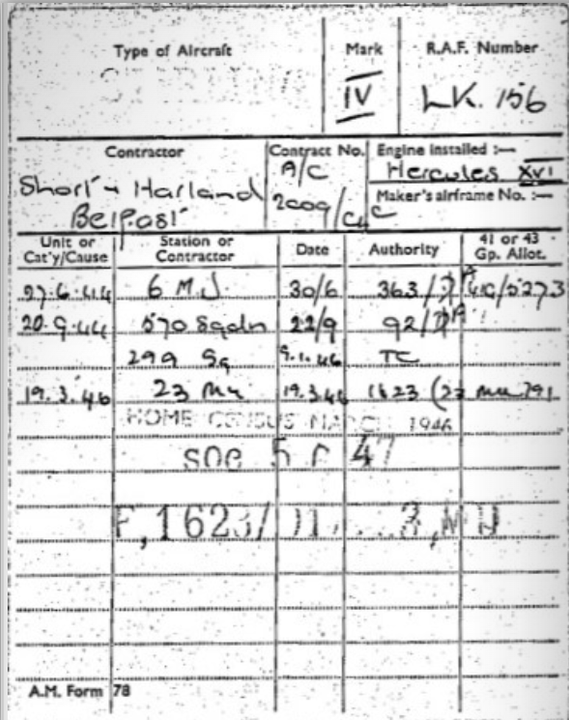 Type of Aircraft Mark R.A.F. Number
IV LK. 156
Contractor Contract No. Engine installed :—
A/C Hercules XVI
Short & Harland Maker's airframe No. :—
Belfast 2009/C4C
Unit or Cat'y/Cause Station or Contractor Date Authority 41 or 43 Gp. Allot.
27.6.44 6 MU 30/6 363/ 41G/5273
20.9.44 570 Sqdn 22/9 92/
299 Sq 9.1.46 TC
19.3.46 23 MU 19.3.46 1623 (23 MU 791
HOME CENSUS MARCH 1946
SOC 5 47
F,1623/
A.M. Form 78